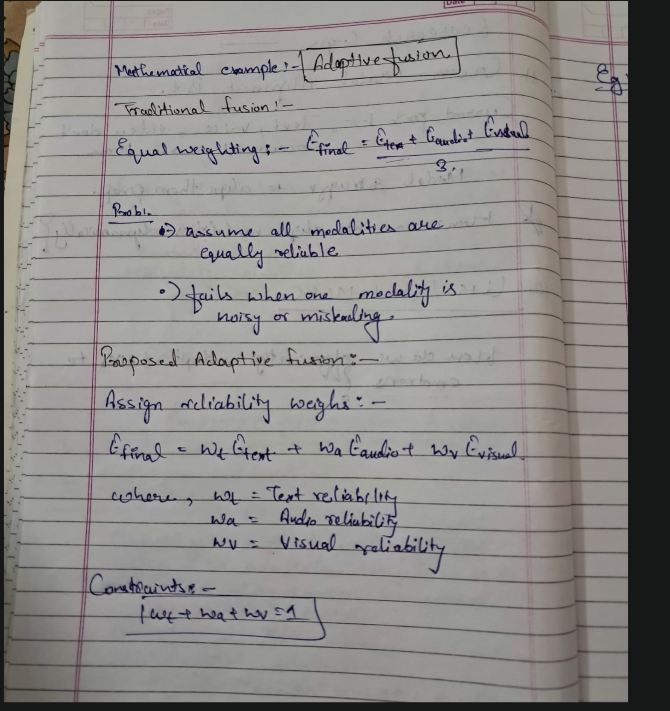 Mathematical example:- Adaptive fusion
Traditional fusion:-
Equal weighting:- Êfinal = Êtext + Êaudio + Êvisual
3.
Prob:.
•) assume all modalities are
equally reliable
•) fails when one modality is
noisy or misleading.
Proposed Adaptive fusion:-
Assign reliability weighs:-
Êfinal = wt Êtext + wa Êaudio + wv Êvisual.
where, wt = Text reliability
wa = Audio reliability
wv = Visual reliability
Constraints:-
wt + wa + wv = 1
Eg